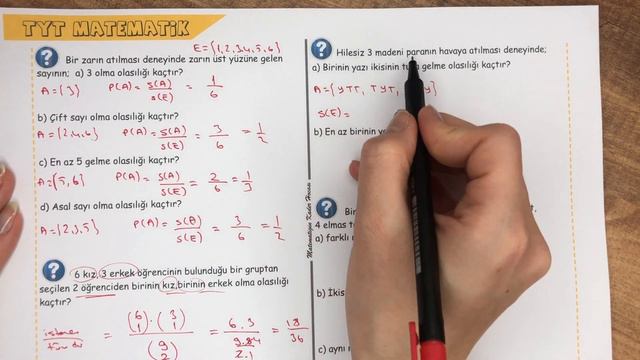 TYT MATEMATİK
E={1,2,3,4,5,6}
Bir zarın atılması deneyinde zarın üst yüzüne gelen
sayının; a) 3 olma olasılığı kaçtır?
A={3} P(A)=s(A)/s(E) = 1/6
b) Çift sayı olma olasılığı kaçtır?
A={2,4,6} P(A)=s(A)/s(E) = 3/6 = 1/2
c) En az 5 gelme olasılığı kaçtır?
A={5,6} P(A)=s(A)/s(E) = 2/6 = 1/3
d) Asal sayı olma olasılığı kaçtır?
A={2,3,5} P(A)=s(A)/s(E) = 3/6 = 1/2
6 kız, 3 erkek öğrencinin bulunduğu bir gruptan
seçilen 2 öğrenciden birinin kız, birinin erkek olma olasılığı
kaçtır?
istenen/tümü = (6 1).(3 1)/(9 2) = 6.3/(9.8/2.1) = 18/36
Matematiğin Kadir Hocası
Hilesiz 3 madeni paranın havaya atılması deneyinde;
a) Birinin yazı ikisinin gelme olasılığı kaçtır?
A={YTT, TYT, Y}
s(E)=
b) En az birinin
Bir
4 elmas
a) farklı
b) İkis
c) aynı